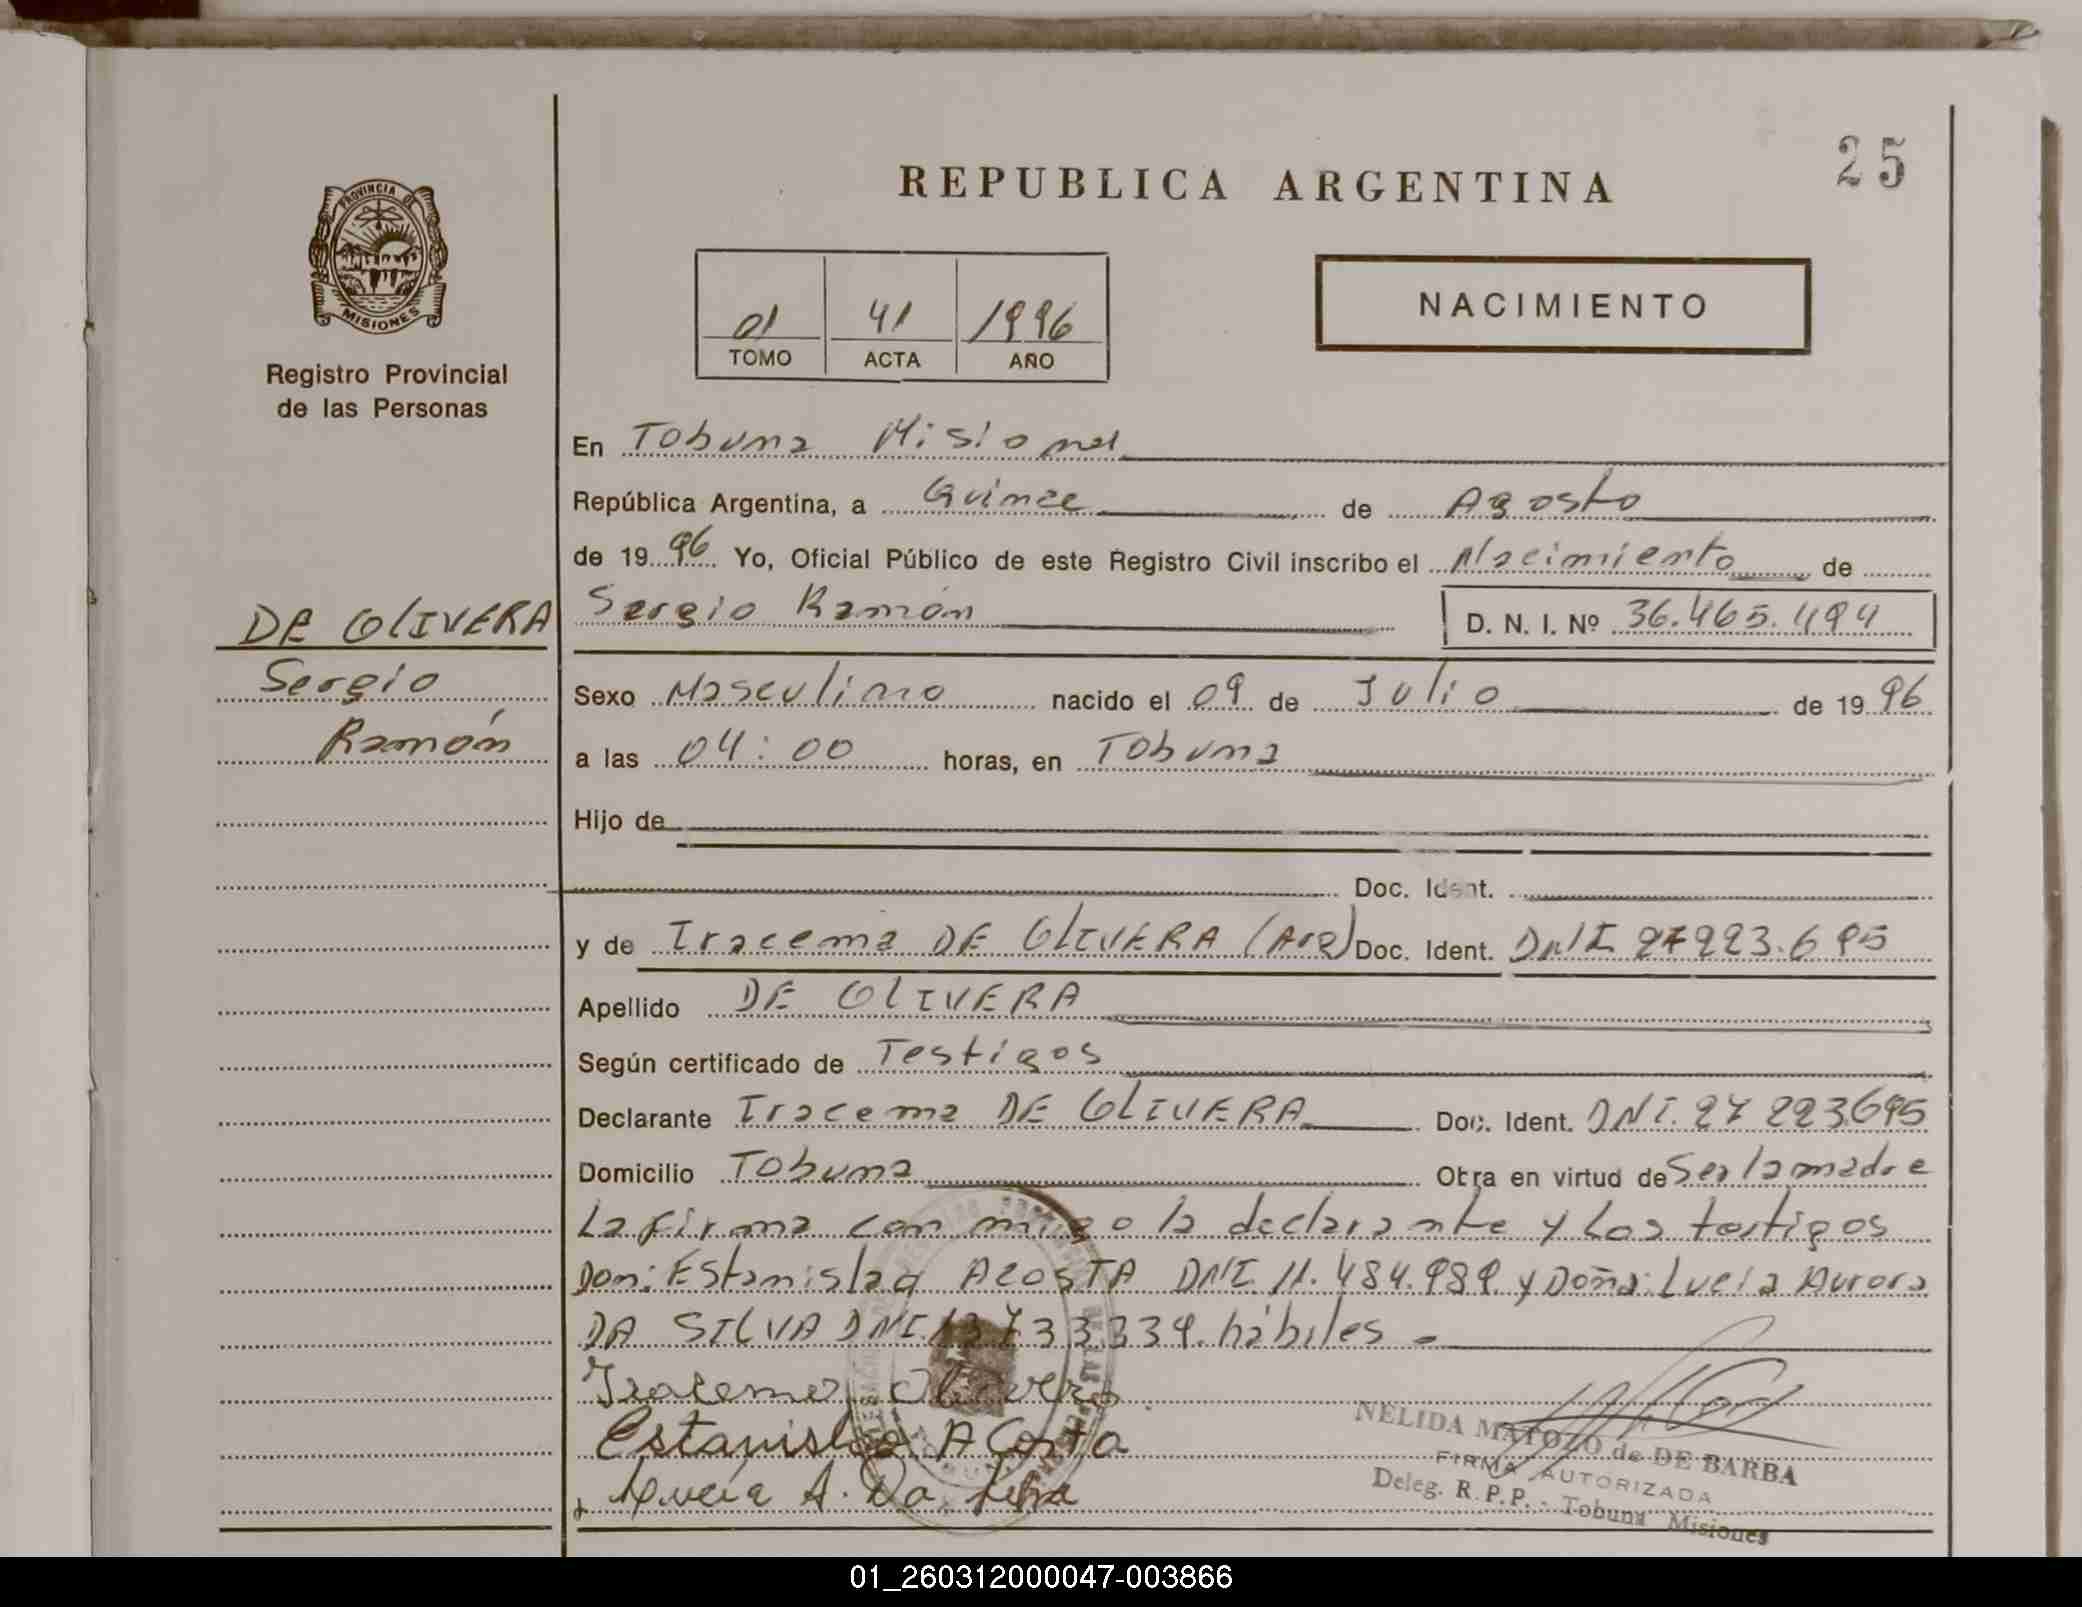 25
REPUBLICA ARGENTINA
PROVINCIA DE
MISIONES
Registro Provincial
de las Personas
01 41 1996
TOMO ACTA AÑO
NACIMIENTO
En Tobuna Misiones
República Argentina, a Quince de Agosto
de 1996 Yo, Oficial Público de este Registro Civil inscribo el Nacimiento de
DE OLIVERA
Sergio
Ramón
Sergio Ramón D. N. I. Nº 36.465.494
Sexo Masculino nacido el 09 de Julio de 1996
a las 04:00 horas, en Tobuna
Hijo de
Doc. Ident.
y de Iracema DE OLIVERA (Arg) Doc. Ident. DNI 27223.695
Apellido DE OLIVERA
Según certificado de Testigos
Declarante Iracema DE OLIVERA Doc. Ident. DNI. 27 223695
Domicilio Tobuna Obra en virtud de Ser la madre
La firma con migo la declarante y los testigos
Don: Estanislaq ACOSTA DNI. 11.484.989. y Doña: Lucia Aurora
DA SILVA DNI. 13733339. hábiles -
Iracema Olivera
Estanislao ACosta
Lucia A. Da Silva
NELIDA MATOZO de DE BARBA
FIRMA AUTORIZADA
Deleg. R.P.P. - Tobuna Misiones
01_260312000047-003866